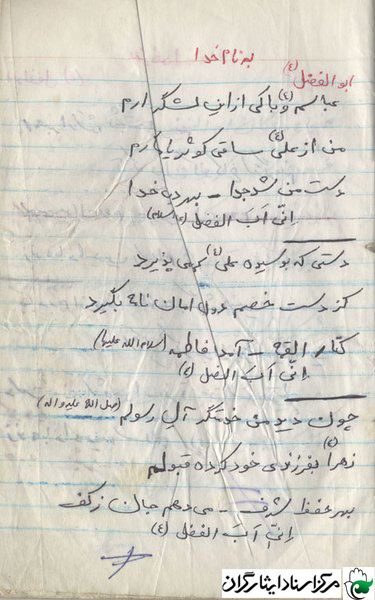 به نام خدا
ابوالفضل (ع)
عباسم (ع) و باکی از این لشگر ندارم
من از علی (ع) ساقی کوثر یادگارم
دست من شد جدا - بهر دین خدا
اِنّی اَبَ الفضل (ع)
دستی که بوسیده علی (ع)
کز دست خصم دون امان نامه بگیرد
کنار القمه - آمد فاطمه (سلام الله علیها)
اِنّی اَبَ الفضل (ع)
چون دید من خدمتگر آل رسولم (صلی الله علیه و اله)
زهرا (ع) بفرزندی خود کرده قبولم
بهر حفظ شرف - می دهم جان ز کف
اِنّی اَبَ الفضل (ع)
مرکز اسناد ایثارگران